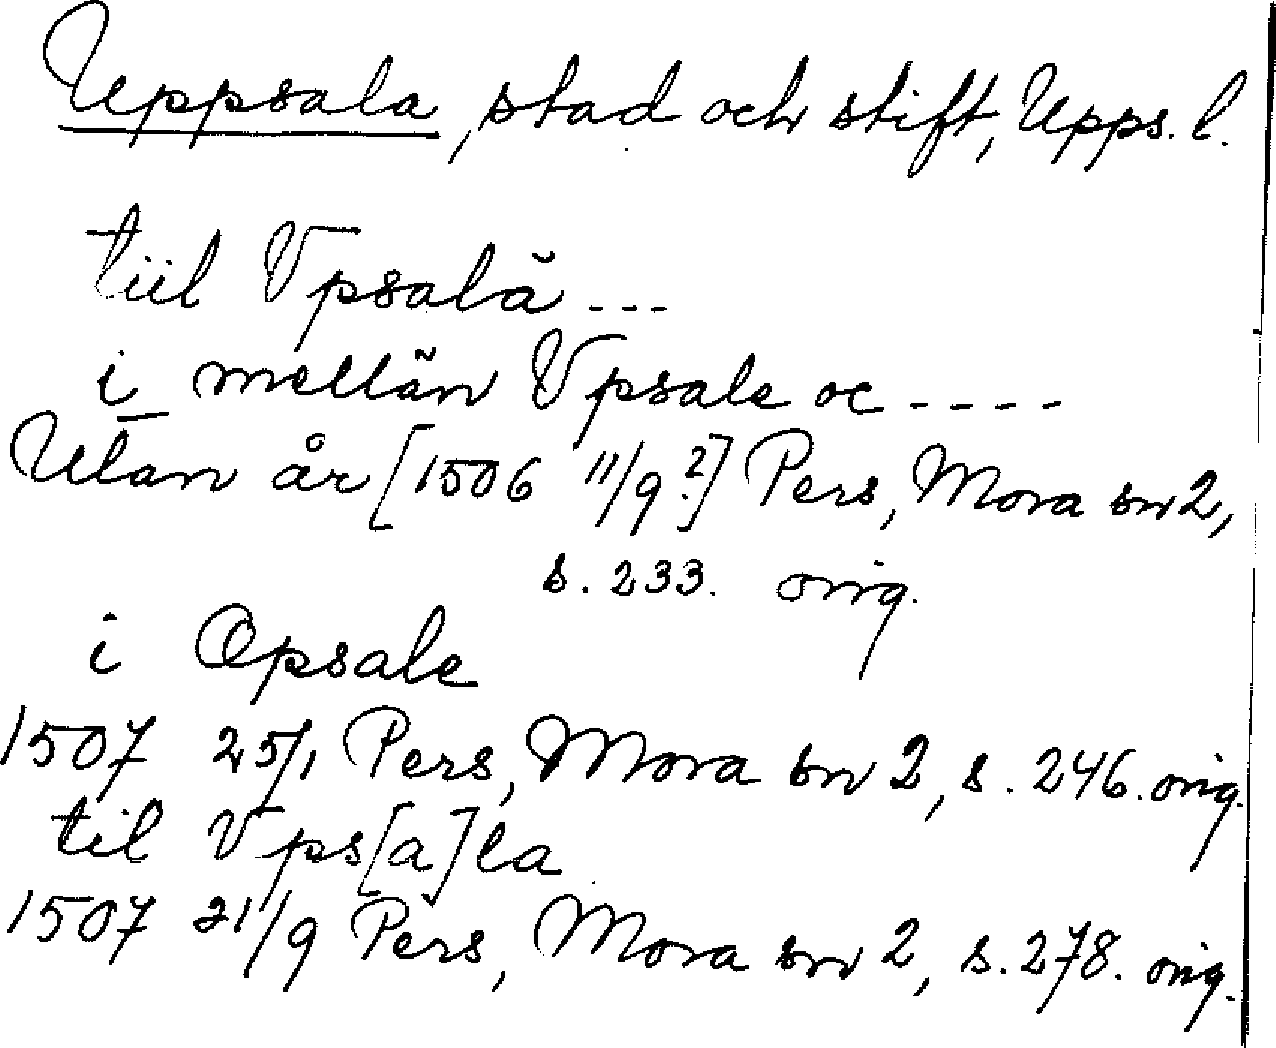 Uppsala, stad och stift, Upps. l.
tiil Vpsalä ...
i mellän Vpsale oc ....
Utan år [1506 11/9?] Pers, Mora sn 2,
s. 233. orig.
i Opsale
1507 25/1 Pers, Mora sn 2, s. 246. orig.
til Vps[a]la
1507 21/9 Pers, Mora sn 2, s. 278. orig.